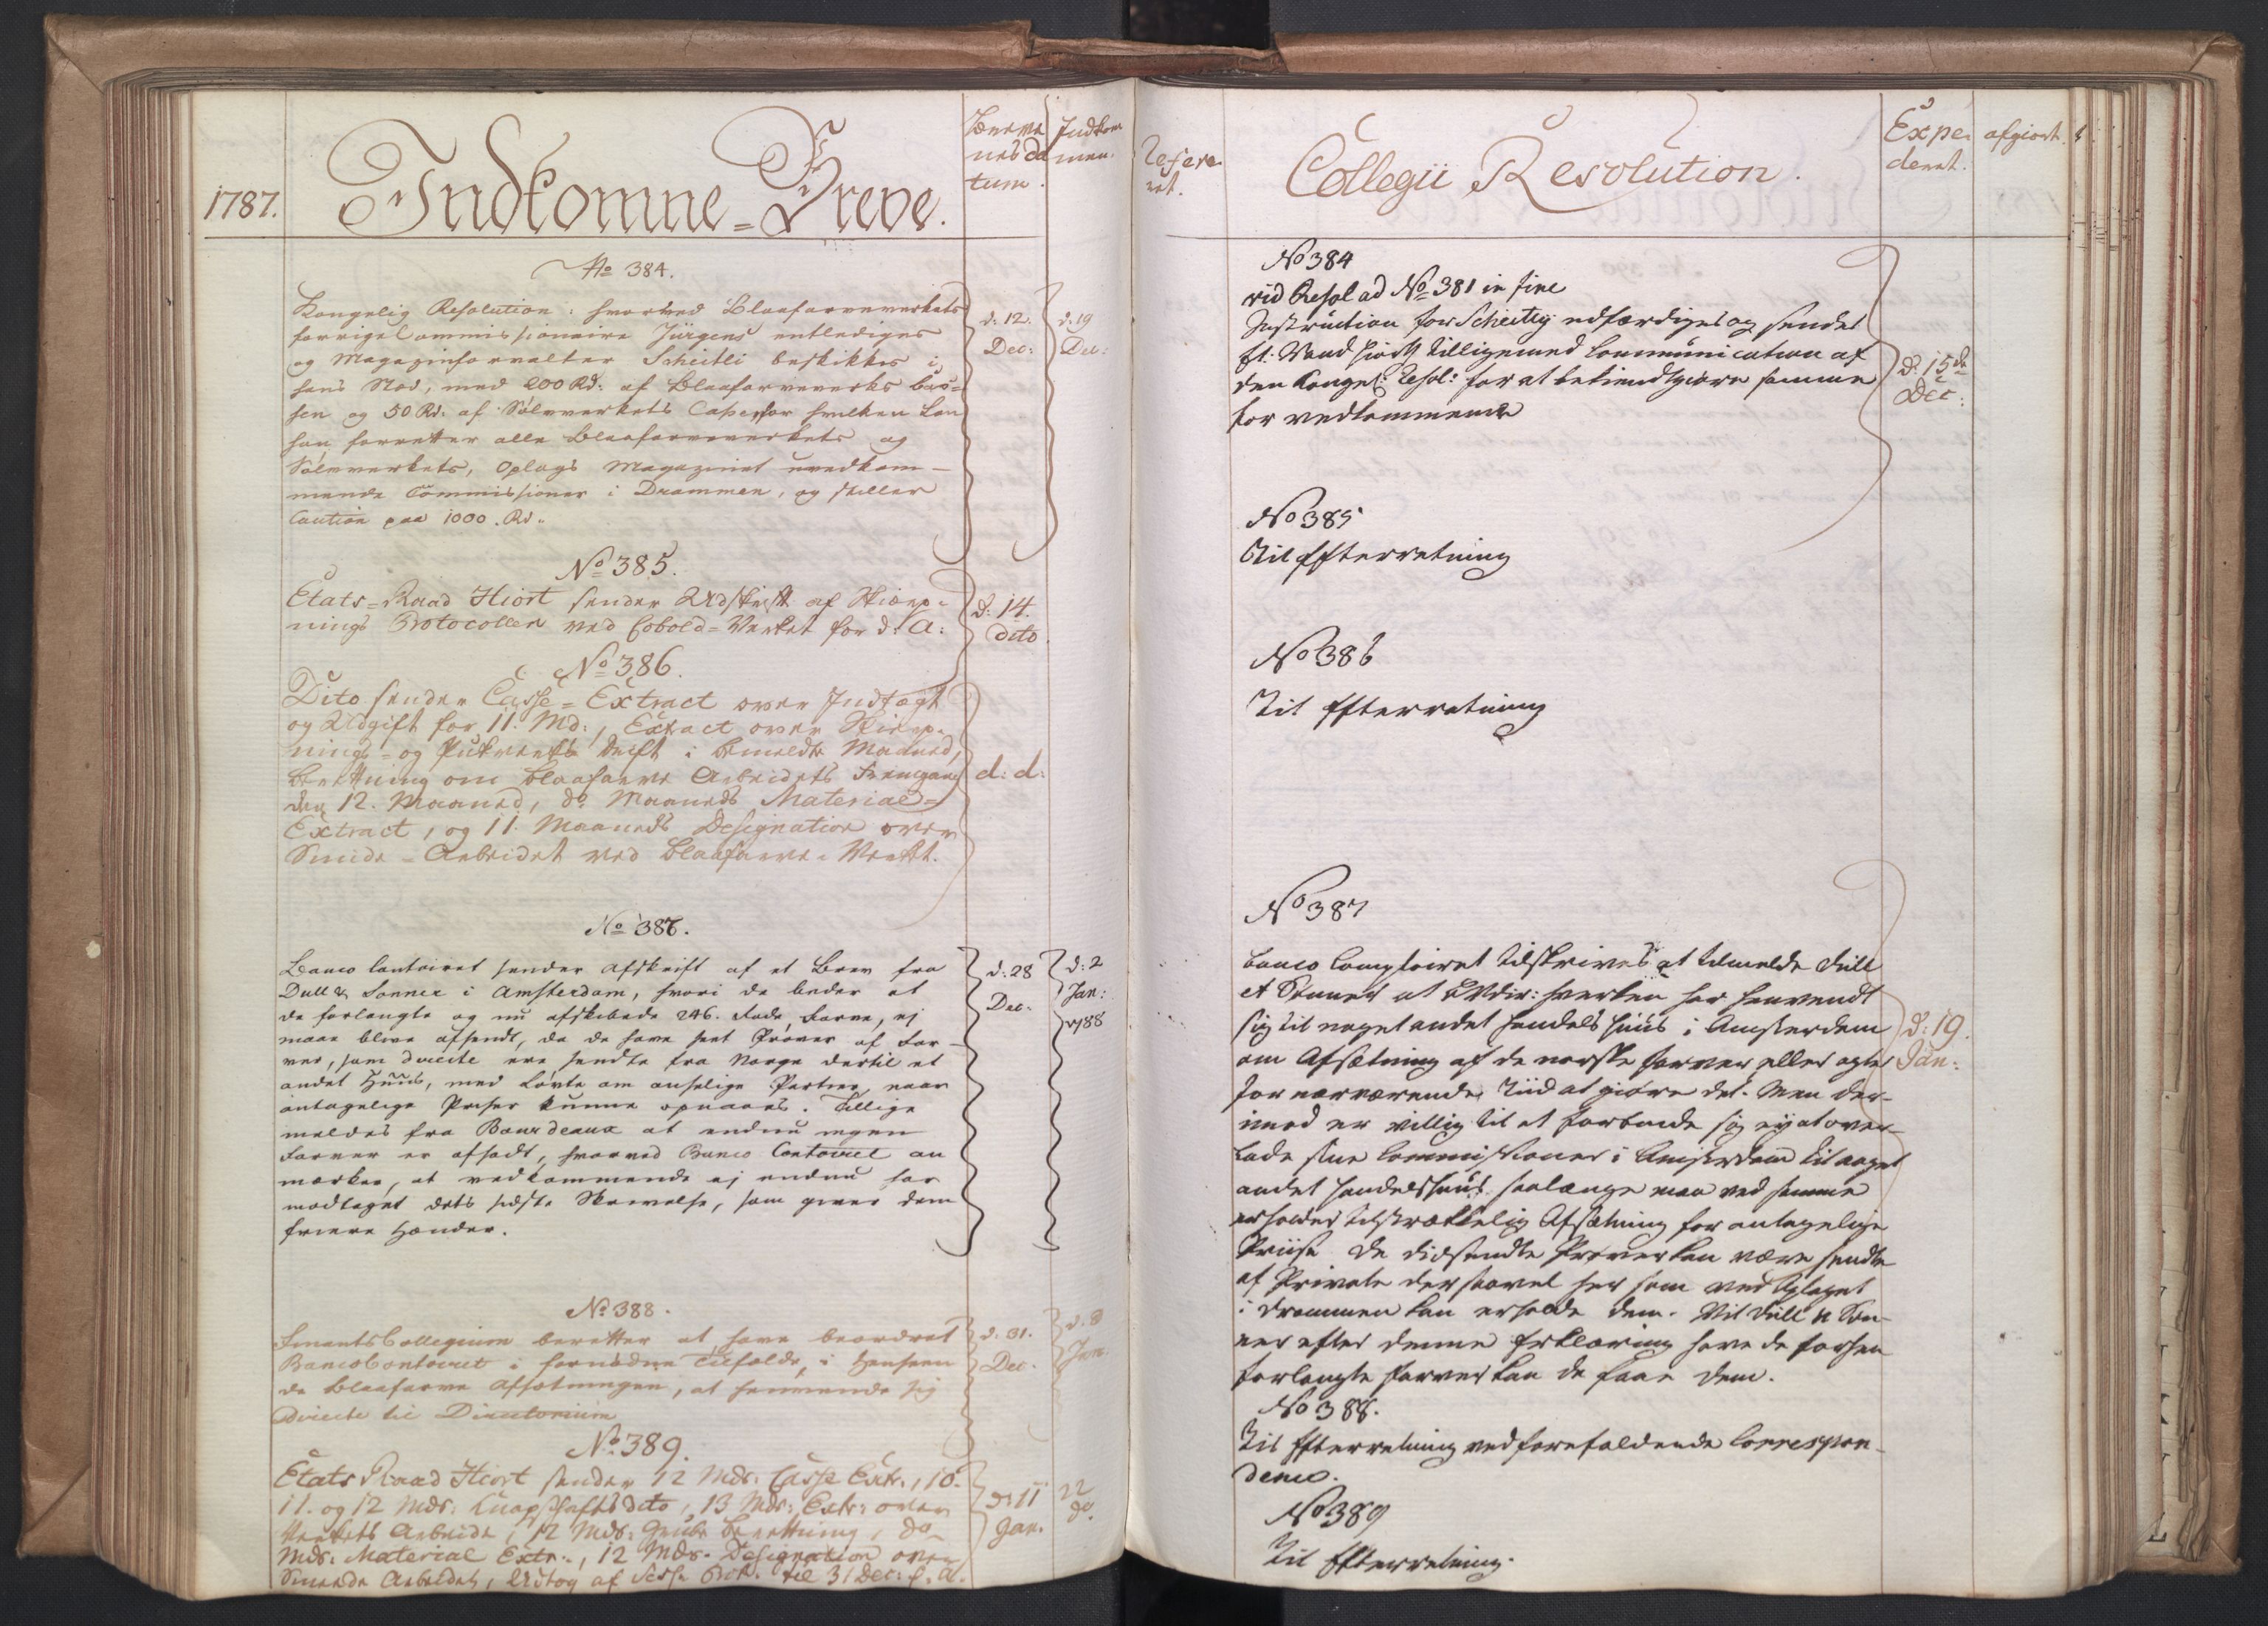 1787.
Indkomne=Breve.
Brevenes Datum.
Indkommen.
No 384.
Kongelig Resolution: hvorved Blaafarveverkets
forrige Commissionaire Jürgens entlediges
og Magazinforvalter Scheitli beskikkes i
hans Sted, med 200 Rd: af Blaafarveverks Cas=
sen og 50 Rd: af Sølvverkets Casse, for hvilken Løn
han forretter alle Blaafarveverkets og
Sølvverkets, Oplags Magazinet uvedkom-
mende Commissioner i Drammen, og stiller
Caution paa 1000. Rd..
d: 12.
Dec:
d: 19
Dec:
No 385.
Etats=Raad Hiort sender Udskrift af Skiærp=
nings Protocollen ved Cobold=Verket for d: A:
d: 14.
dito.
No 386.
Dito sender Casse=Extract over Indtægt
og Udgift for 11. Md:, Extract over Skiærp=
nings= og Pukverks Drift i bemeldte Maaned,
Beretning om Blaafarve Arbeidets Fremgang
den 12. Maaned, do Maaneds Material=
Extract, og 11. Maaneds Designation over
Smide=Arbeidet ved Blaafarve=Verket.
d: d:
No 387.
Banco Contoiret sender Afskrift af et Brev fra
Dull & Sönner i Amsterdam, hvori de beder at
de forlangte og nu afskibede 246. Fade Farve, ej
maae blive afsendt, da de have seet Prøver af Far-
ver, som directe ere sendte fra Norge dertil et
andet Huus, med Løvte om anselige Partier, naar
antagelige Priser kunne opnaaes. Tillige
meldes fra Bourdeaux at endnu ingen
Farver er afsadt, hvorved Banco Contoiret an
mærker, at vedkommende ej endnu har
modtaget dets sidste Skrivelse, som giver dem
friere Hænder.
d: 28
Dec.
d: 2
Jan:
1788
No 388.
Finants Collegium beretter at have beordret
Banco Contoiret i fornødne Tilfælde, i Henseende
de Blaafarve Afsætningen, at henvende sig
directe til Directorium
d. 31.
Dec.
d. 8
Jan.
No 389.
Etats Raad Hiort sender 12 Mds: Casse Extr., 10.
11. og 12 Mds: Knapskafts dito, 13 Mds: Extr: over
Verkets Arbeide, 12 Mds: Grube Beretning, do
Mds: Material Extr., 12 Mds. Designation over
Smeede Arbeidet, Udtog af Sesss. Prot. til 31 Dec: f. A.
d: 11
Jan.
22
do.
Refere
ret.
Collegii Resolution.
Expe=
deret.
afgiort.
No 384
vid Resol ad No 381 in fine
Instruction for Scheitly udfærdiges og sendes
Et: Raad Hiort tilligemed Communication af
den Kongel: Resol: for at bekiendtgiøre samme
for vedkommende
d. 15de
Dec:
No 385
Til Efterretning
No 386
Til Efterretning
No 387
Banco Comptoiret tilskrives at tilmelde Dull
et Sönner at BVDir: hverken har henvendt
sig til noget andet Handels Huus i Amsterdam
om Afsætning af de norske Farver, eller agter
for nærværende Tiid at giøre det. Men der-
imod er villig til at forbinde sig ey at over-
lade sine Commissioner i Amsterdam til noget
andet Handelshuus saalænge man ved samme
erholder tilstrækkelig Afsætning for antagelige
Priise De didsendte Prøver kan være sendte
af Private der saavel her som ved Oplaget
i Drammen kan erholde dem. Vil Dull & Søn-
ner efter denne Erklæring have de forhen
forlangte Farver kan de faae dem.
d: 19.
Jan:
No 388.
Til Efterretning ved forefaldende Correspon-
dence.
No 389
Til Efterretning.